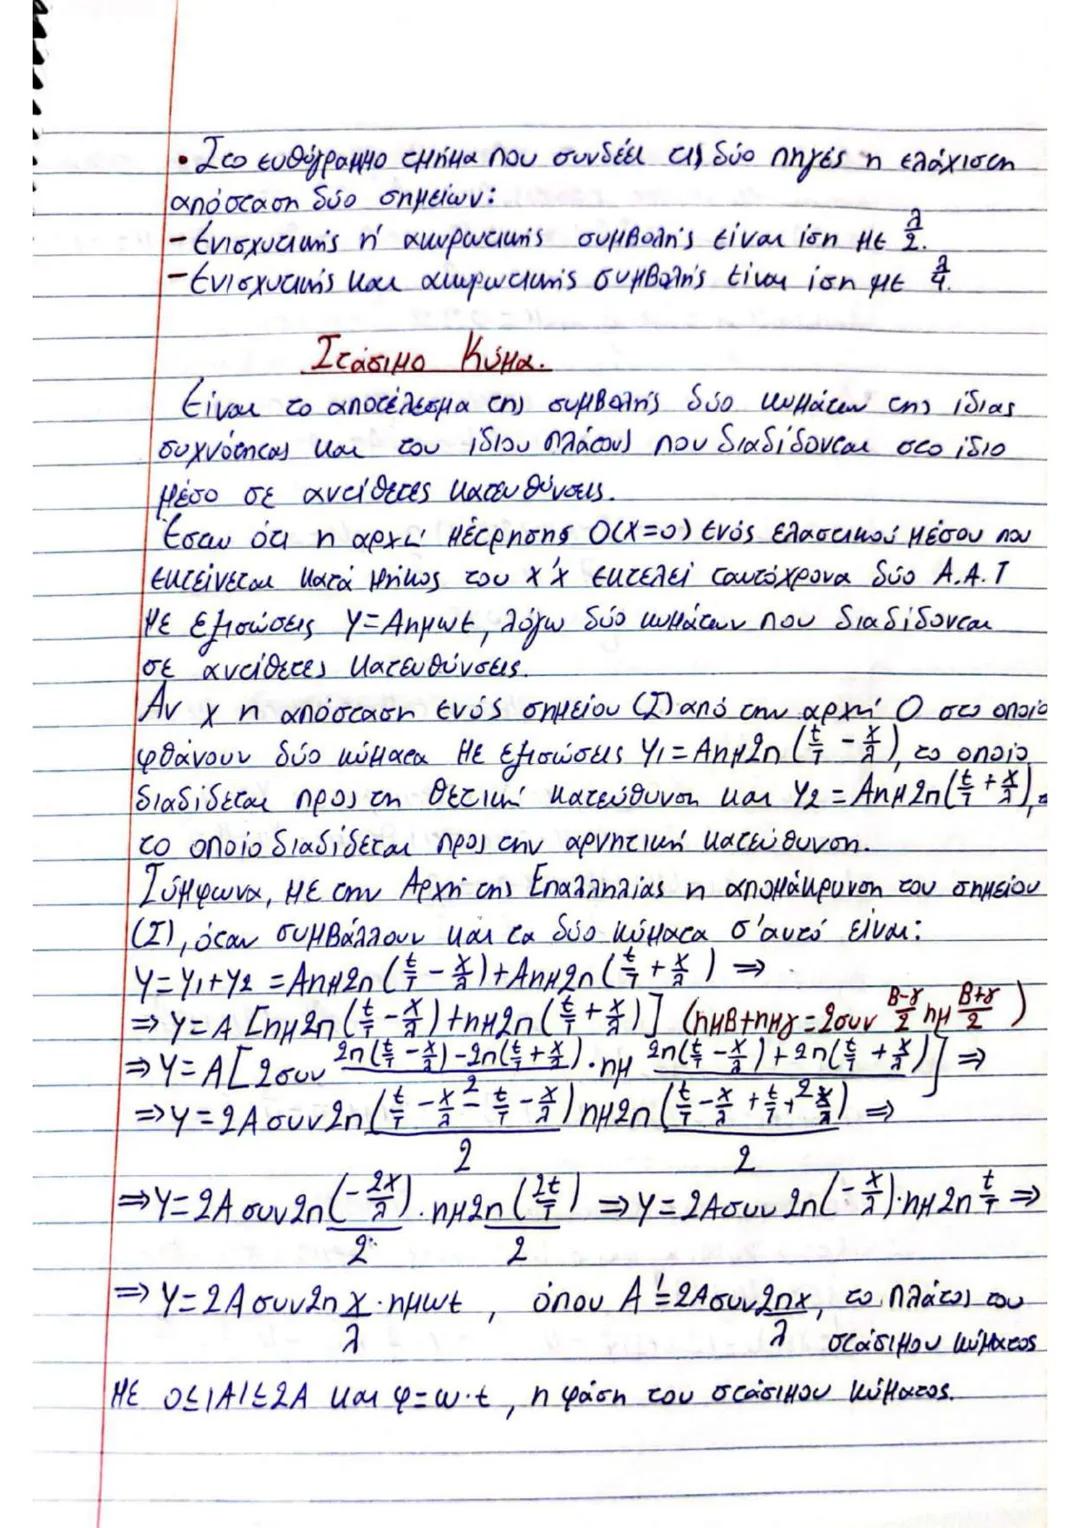 • Στο ευθύγραμμο τμήμα που συνδέει τις δύο πηγές η ελάχιστη
απόσταση δύο σημείων:
- Ενισχυτικής ή ακυρωτικής συμβολής είναι ίση με λ/2.
- Ενισχυτικής και ακυρωτικής συμβολής είναι ίση με λ/4.
Στάσιμο Κύμα.
Είναι το αποτέλεσμα της συμβολής δύο κυμάτων της ίδιας
συχνότητας και του ίδιου πλάτους που διαδίδονται στο ίδιο
μέσο σε αντίθετες κατευθύνσεις.
Έστω ότι η αρχή μέτρησης Ο(x=0) ενός ελαστικού μέσου που
εκτείνεται κατά μήκος του x'x εκτελεί ταυτόχρονα δύο Α.Α.Τ
με εξισώσεις y=Aημωt, λόγω δύο κυμάτων που διαδίδονται
σε αντίθετες κατευθύνσεις.
Αν x η απόσταση ενός σημείου (Σ) από την αρχή Ο στο οποίο
φθάνουν δύο κύματα με εξισώσεις y1=Aημ2π(t/T - x/λ), το οποίο
διαδίδεται προς τη θετική κατεύθυνση και y2=Aημ2π(t/T + x/λ),
το οποίο διαδίδεται προς την αρνητική κατεύθυνση.
Σύμφωνα, με την Αρχή της Επαλληλίας η απομάκρυνση του σημείου
(Σ), όταν συμβάλλουν και τα δύο κύματα σ'αυτό είναι:
y=y1+y2=Aημ2π(t/T - x/λ)+Aημ2π(t/T + x/λ) ⇒
⇒ y=A[ημ2π(t/T - x/λ)+ημ2π(t/T + x/λ)] (ημβ+ημγ=2συν β-γ/2 ημ β+γ/2)
⇒ y=A[2συν 2π(t/T - x/λ)-2π(t/T + x/λ)/2 · ημ 2π(t/T - x/λ)+2π(t/T + x/λ)/2] ⇒
⇒ y=2Aσυν2π(t/T - x/λ - t/T - x/λ)/2 ημ2π(t/T - x/λ + t/T + x/λ)/2 ⇒
⇒ y=2Aσυν2π(-2x/λ)/2 · ημ2π(2t/T)/2 ⇒ y=2Aσυν2π(-x/λ)·ημ2π t/T ⇒
⇒ y=2Aσυν2π x/λ · ημωt, όπου A'=2Aσυν2πx/λ, το πλάτος του
στάσιμου κύματος
με 0≤|A'|≤2A και φ=ω·t, η φάση του στάσιμου κύματος.